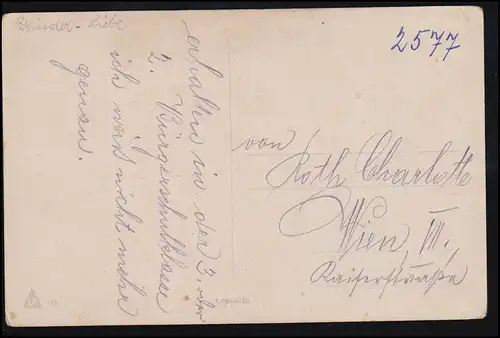 Kinder - Liebe
2577
erhalten in der 3. oder
2. Bürgerschulklasse
ich weiß nicht mehr
genau.
von
Roth Charlotte
Wien, III,
Kaiserstraße